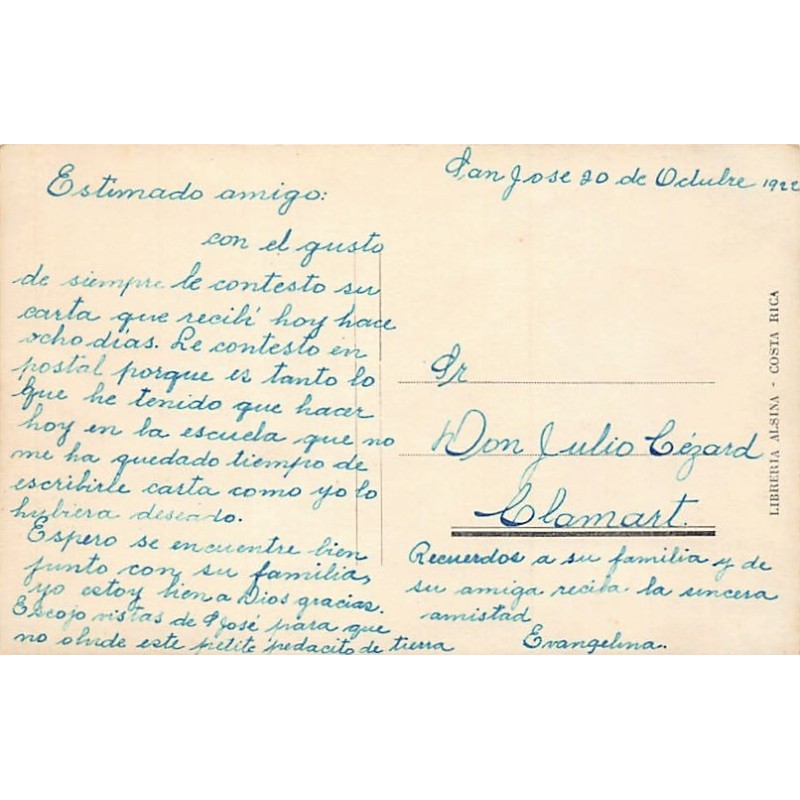 San Jose 20 de Octubre 1922
Estimado amigo:
con el gusto
de siempre le contesto su
carta que recibí hoy hace
ocho días. Le contesto en
postal porque es tanto lo
que he tenido que hacer
hoy en la escuela que no
me ha quedado tiempo de
escribirle carta como yo lo
hubiera deseado.
Espero se encuentre bien
junto con su familia,
yo estoy bien a Dios gracias.
Escojo vistas de S José para que
no olvide este petite pedacito de tierra
Sr
Don Julio Cézard
Clamart.
Recuerdos a su familia y de
su amiga reciba la sincera
amistad
Evangelina.
LIBRERIA ALSINA - COSTA RICA